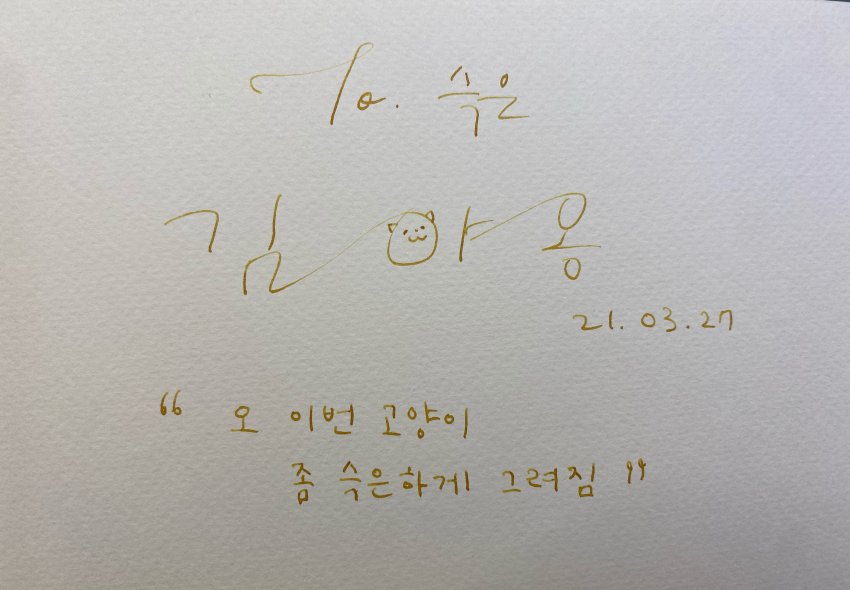 To. 수은
김야옹
21.03.27
“ 오 이번 고양이
좀 수은하게 그려짐 ”